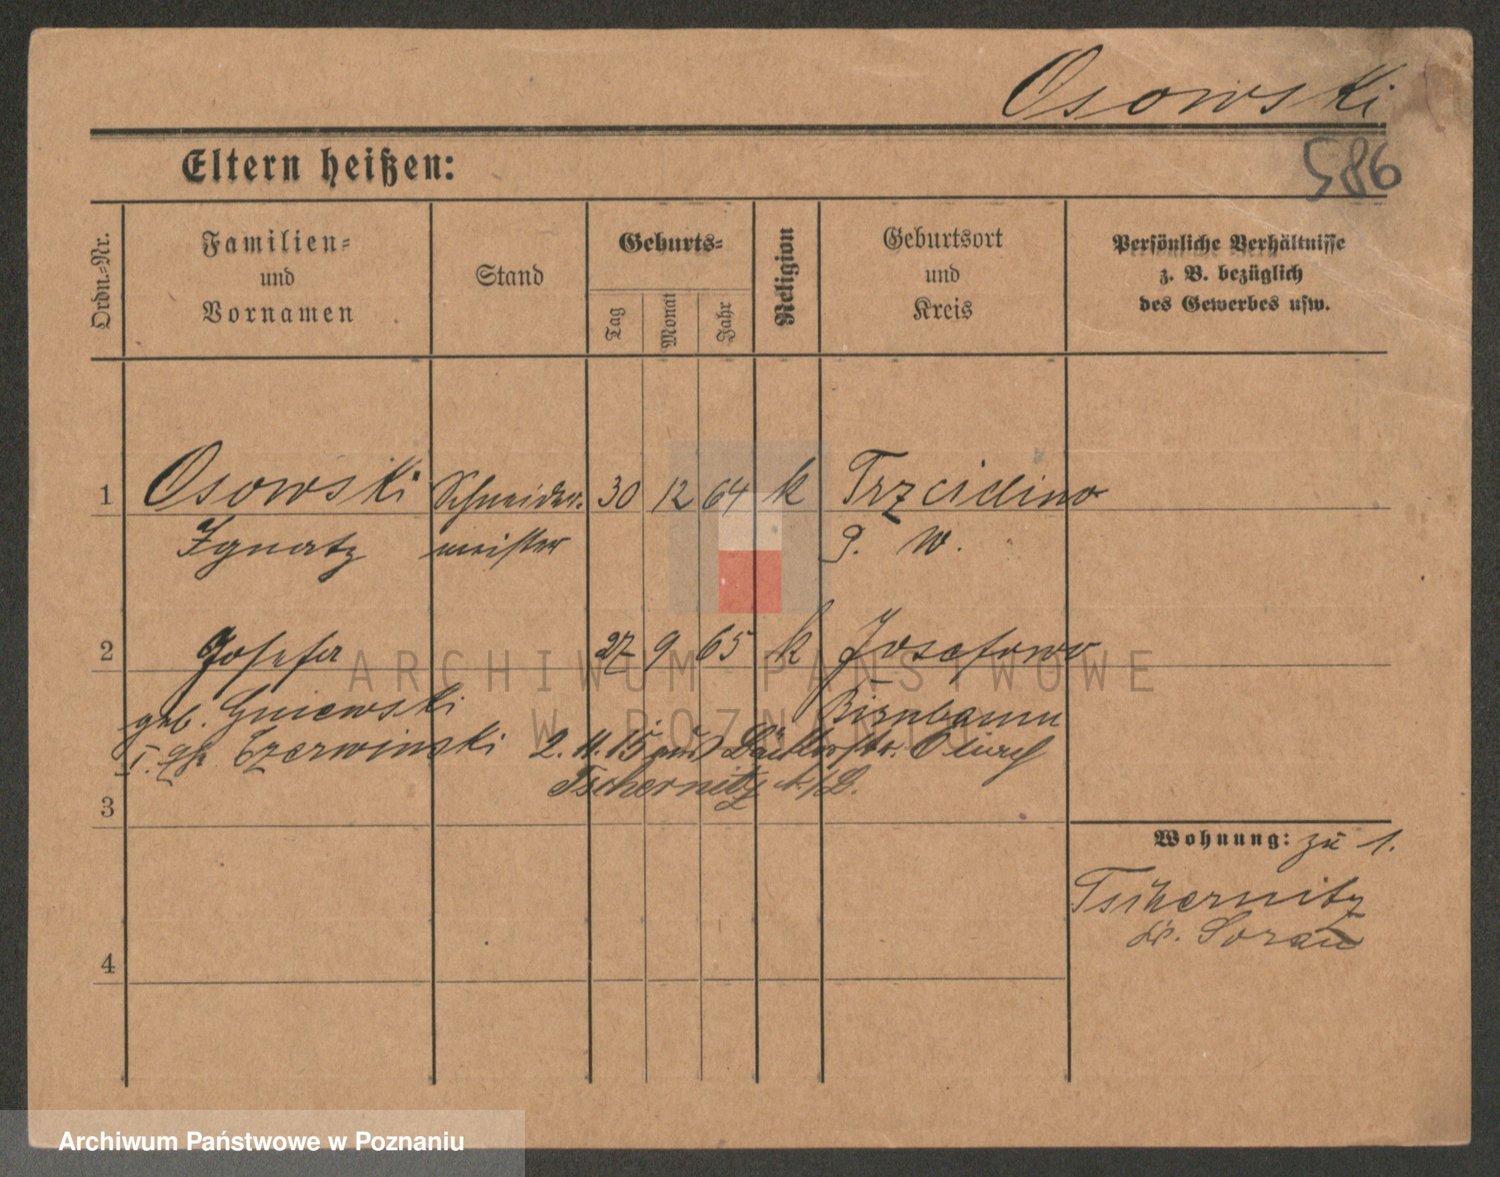 Osowski
586
Eltern heißen:
Ordn.=Nr.
Familien=
und
Vornamen
Stand
Geburts=
Tag
Monat
Jahr
Religion
Geburtsort
und
Kreis
Persönliche Verhältnisse
z. B. bezüglich
des Gewerbes usw.
1 Osowski Schneider- 30 12 64 k Trzcielino
Ignatz meister P. W.
2 Josefa 27 9 65 k Josefowo
geb. Gniewski Birnbaum
I. Czerwinski 2. 11. 15
Tschernitz N/L.
3
Wohnung: zu 1.
Tschernitz
Kr. Sorau
4
ARCHIWUM PAŃSTWOWE
W POZNANIU
Archiwum Państwowe w Poznaniu